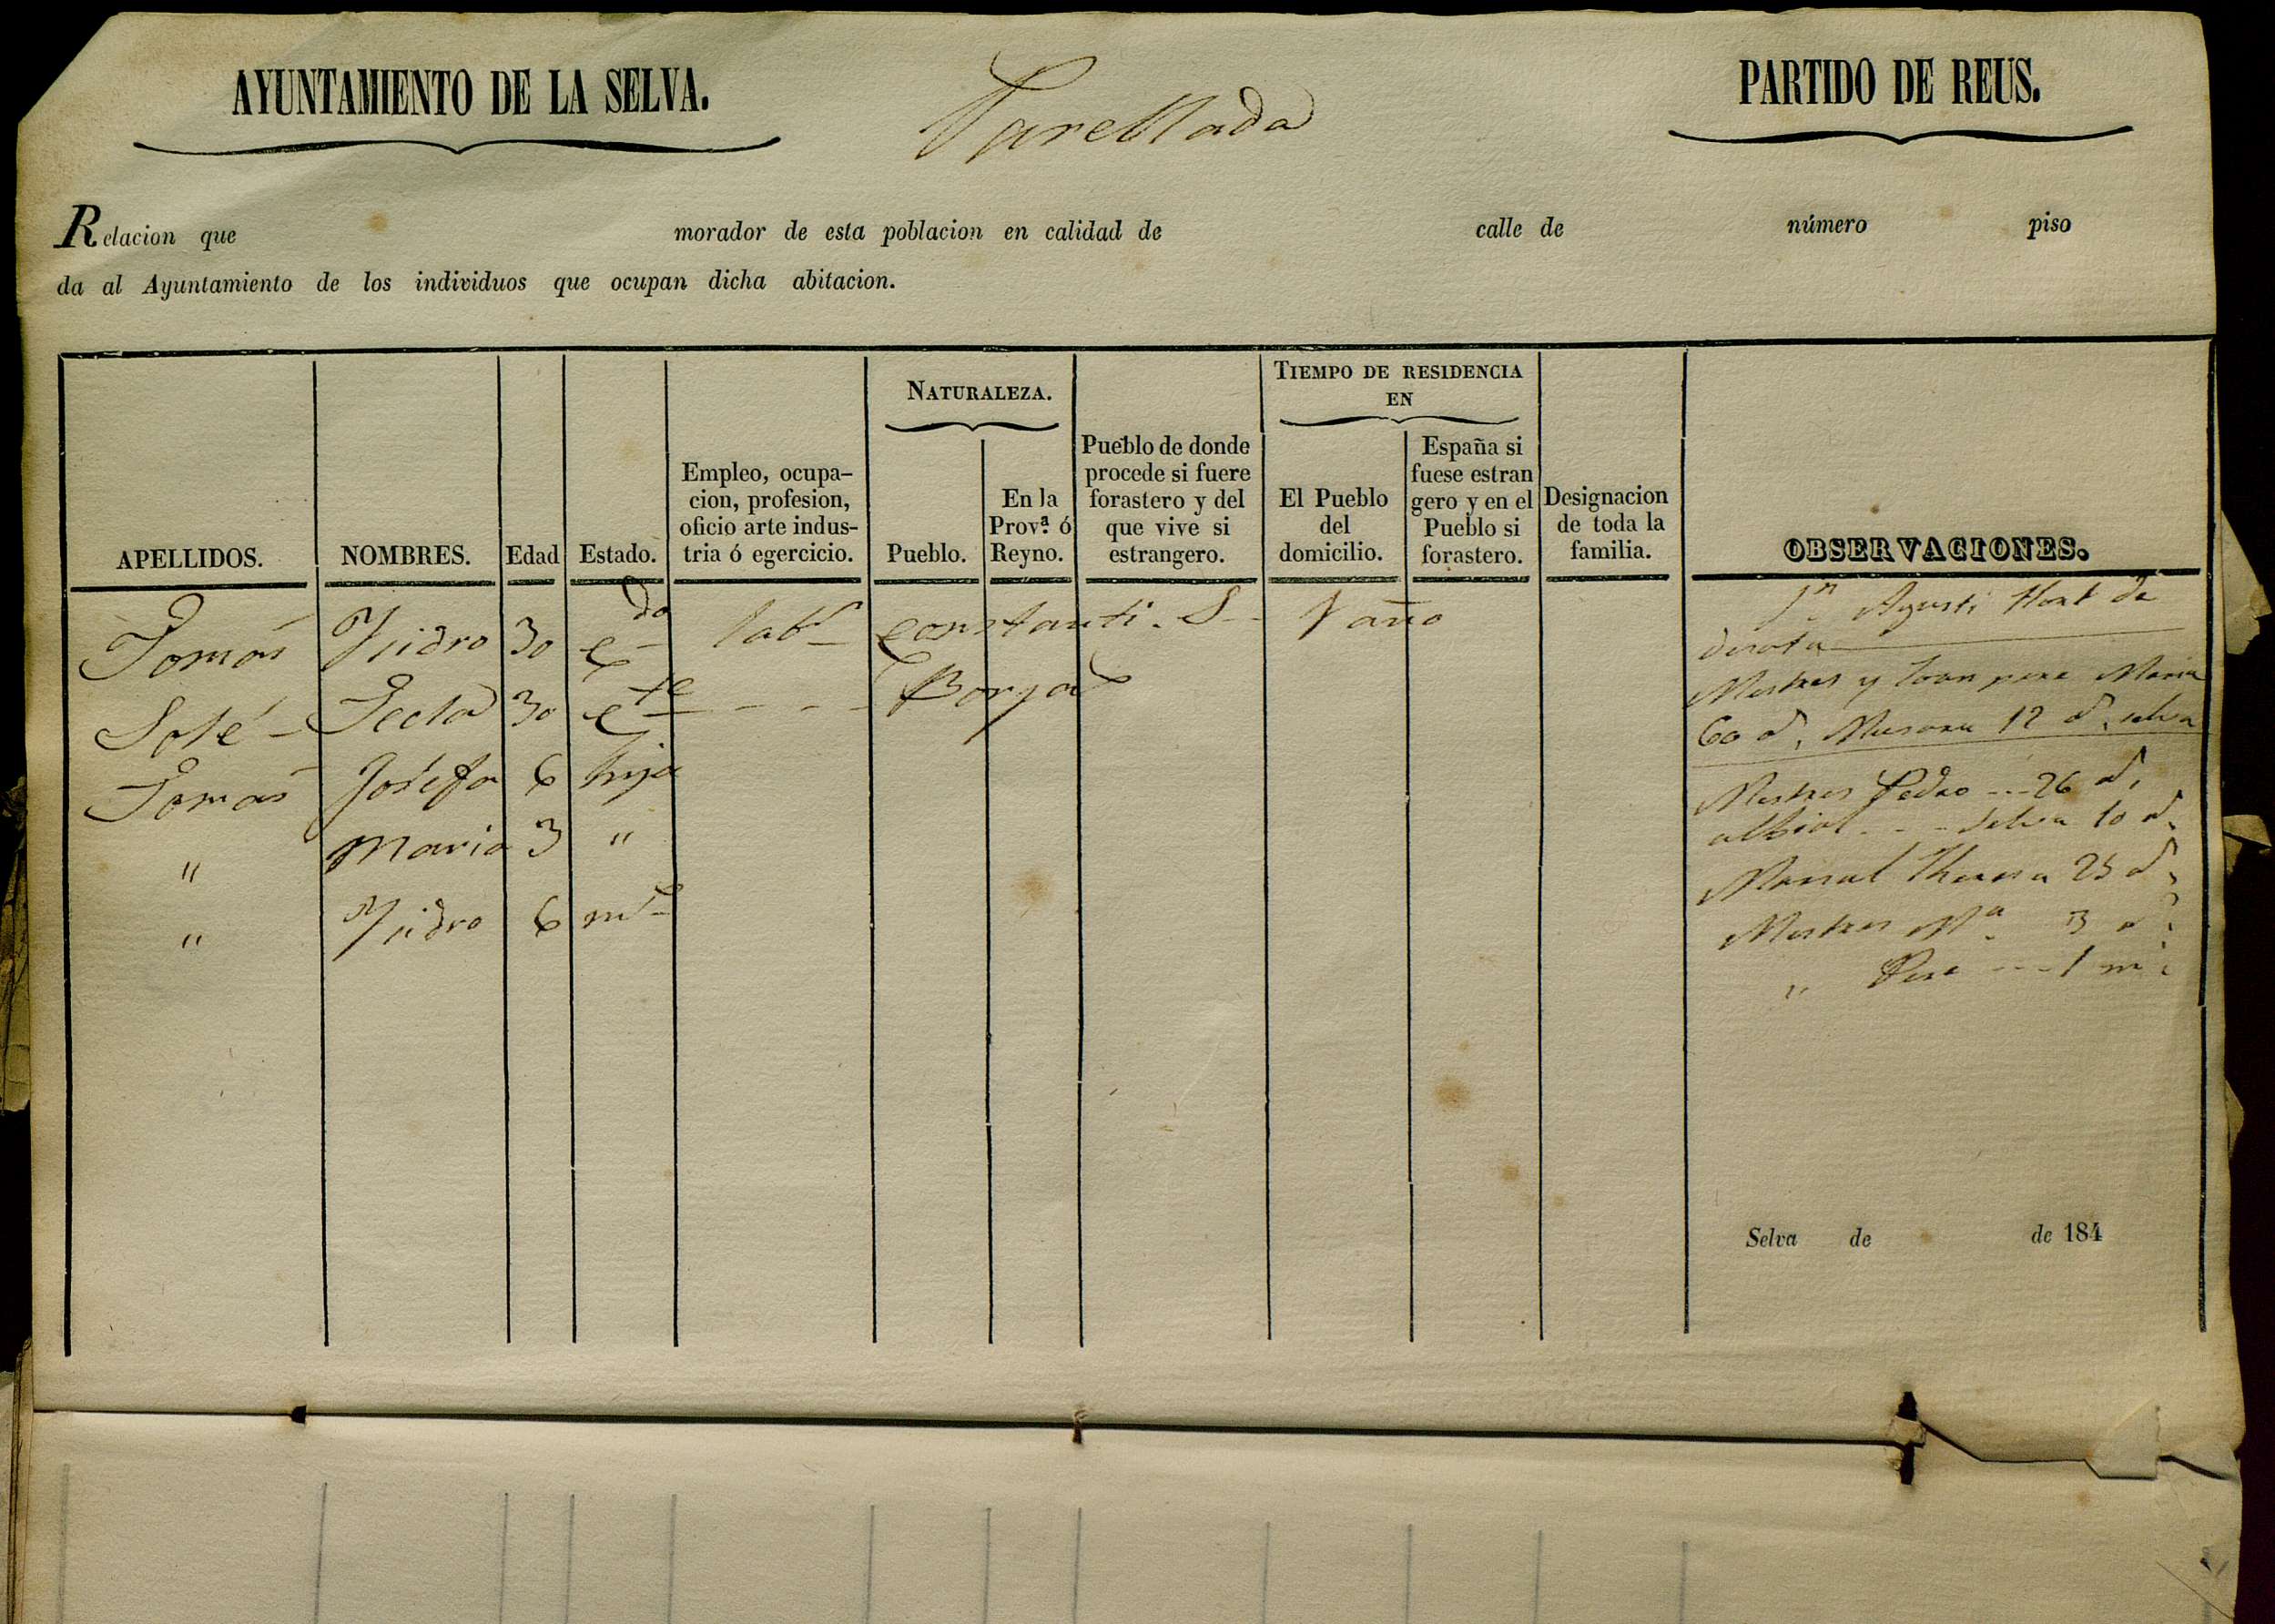 AYUNTAMIENTO DE LA SELVA.
PARTIDO DE REUS.
Relacion que morador de esta poblacion en calidad de calle de número piso
da al Ayuntamiento de los individuos que ocupan dicha abitacion.
APELLIDOS.
NOMBRES.
Edad
Estado.
Empleo, ocupa-
cion, profesion,
oficio arte indus-
tria ó egercicio.
NATURALEZA.
Pueblo.
En la
Prov.ª ó
Reyno.
Pueblo de donde
procede si fuere
forastero y del
que vive si
estrangero.
TIEMPO DE RESIDENCIA
EN
El Pueblo
del
domicilio.
España si
fuese estran
gero y en el
Pueblo si
forastero.
Designacion
de toda la
familia.
OBSERVACIONES.
Tomás Ysidro 30 c.do lab.r constanti. S-- 1 año
Solé - Tecla 30 c.te - - - Borja
Tomás Josefa 6 hija
" Maria 3 "
" Ysidro 6 m.s
J.n Agusti Hort de
Mestres y pere Maria
60 a. 12 a. selva
Mestres Pedro --- 26 a.
albiol - - - Selva 10 a.
Theresa 25 a.
Mestres M.a 3 a.
" Pere --- 1 m.
Selva de de 184